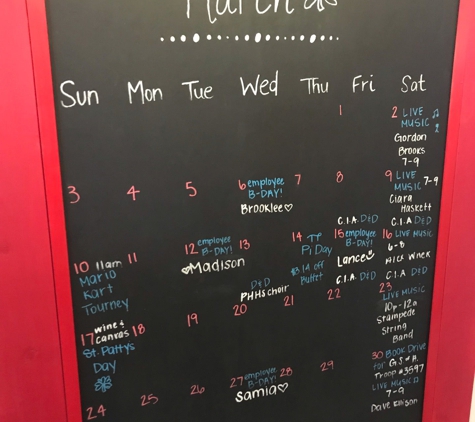 March
Sun Mon Tue Wed Thu Fri Sat
1
2 LIVE
MUSIC
Gordon
Brooks
7-9
3
4
5
6 employee
B-DAY!
Brooklee
7
8
9 LIVE
MUSIC 7-9
Ciara
Haskett
C.I.A. D&D
C.I.A D&D
10 11am
Mario
Kart
Tourney
11
12 employee
B-DAY!
Madison
13
14
Pi Day
$3.14 off
Buffet
15 employee
B-DAY!
Lance
C.I.A. D&D
16 LIVE MUSIC
6-8
C.I.A D&D
17 wine &
canvas
St. Patty's
Day
18
19
D&D
PHHS choir
20
21
22
23
LIVE MUSIC
10p-12a
Stampede
String
Band
24
25
26
27 employee
B-DAY!
Samia
28
29
30 BOOK Drive
for G.S. of A.
Troop #3597
LIVE MUSIC
7-9
Dave Ellison